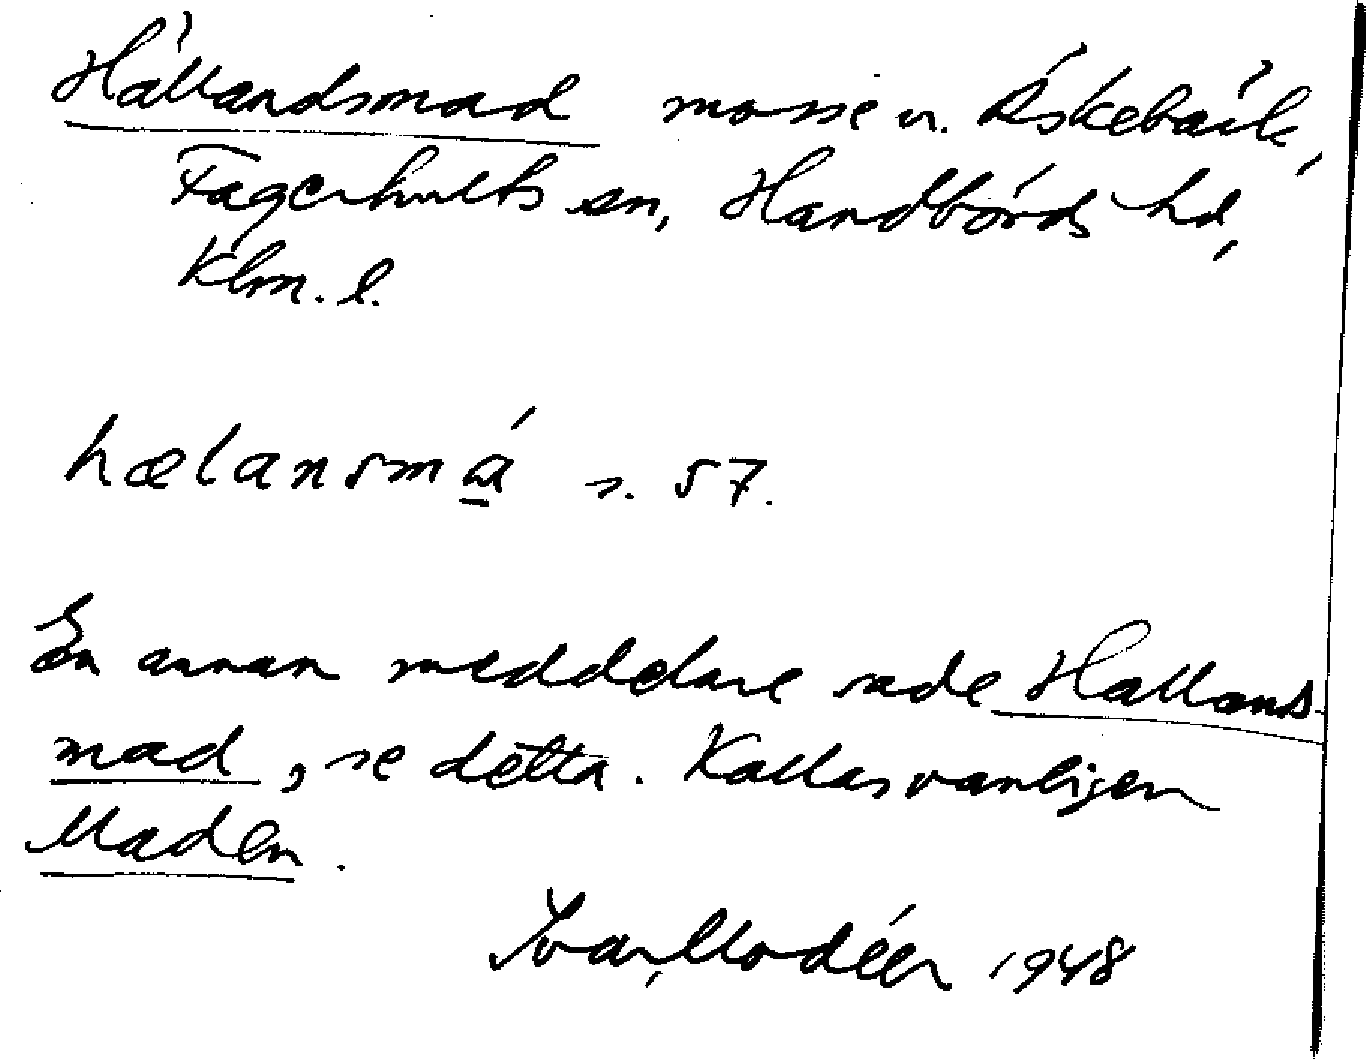 Hällandsmad mosse v. Äskebäck,
Fagerhults sn, Handbörds hd,
Klm. l.
hælansmá s. 57.
En annan meddelare sade Hallands
mad, se detta. Kallas vanligen
Maden.
Ivar Modéer 1948